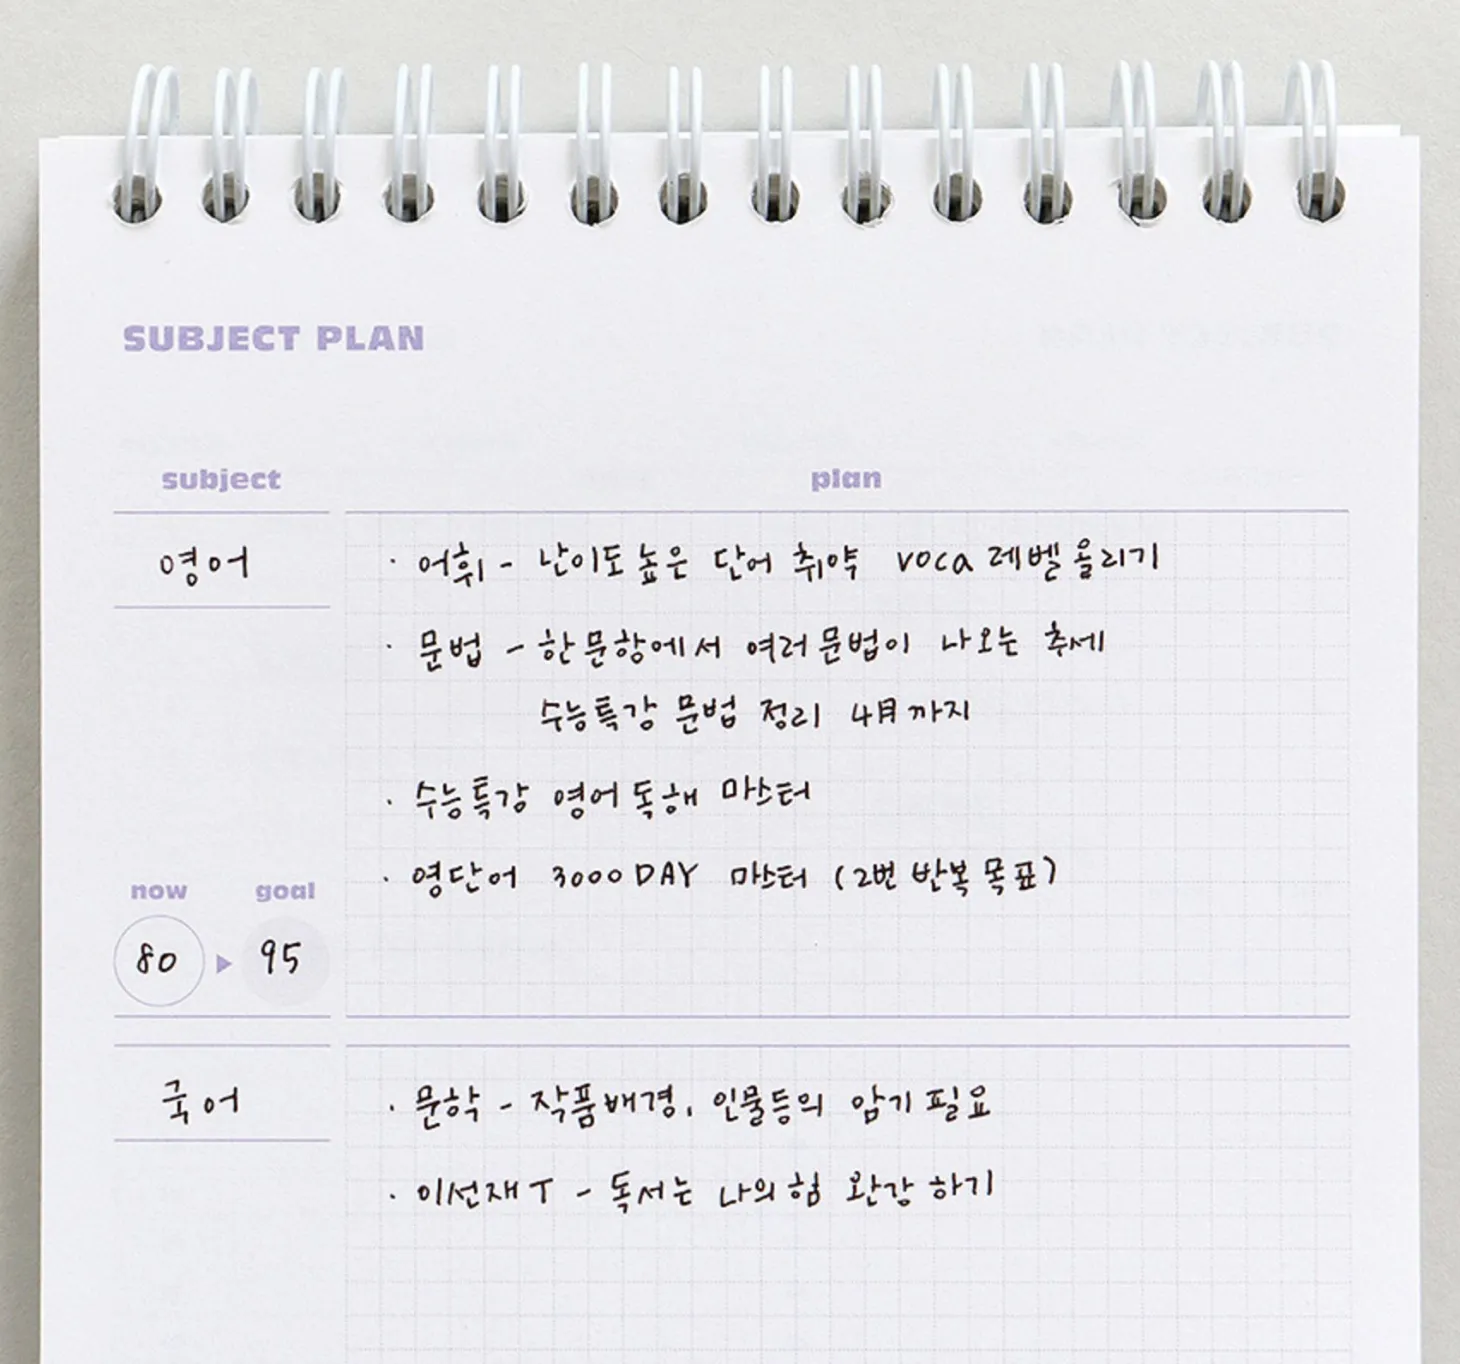 SUBJECT PLAN
subject
plan
영어
· 어휘 - 난이도 높은 단어 취약 voca 레벨 올리기
· 문법 - 한 문항에서 여러 문법이 나오는 추세
수능특강 문법 정리 4月까지
· 수능특강 영어독해 마스터
· 영단어 3000 DAY 마스터 (2번 반복 목표)
now
goal
80
95
국어
· 문학 - 작품배경, 인물등의 암기 필요
· 이선재T - 독서는 나의 힘 완강하기